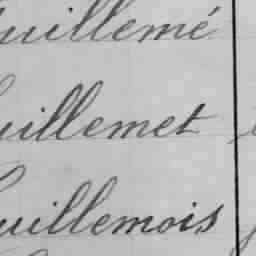 uillemé
uillemet
uillemois